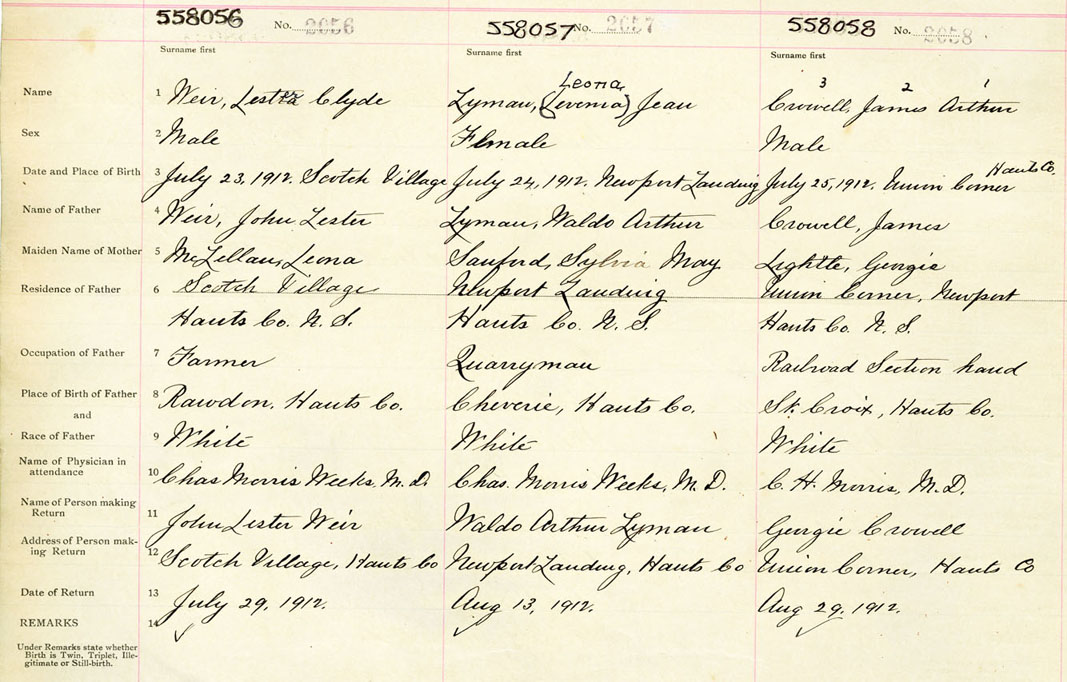 558056 No. 2056 558057 No. 2057 558058 No. 2058
Surname first Surname first Surname first
Leona 3 2 1
Name 1 Weir, Lester Clyde Lyman, (Levenia) Jean Crowell, James Arthur
Sex 2 Male Female Male
Hants Co.
Date and Place of Birth 3 July 23, 1912. Scotch Village July 24, 1912. Newport Landing July 25, 1912. Union Corner
Name of Father 4 Weir, John Lester Lyman, Waldo Arthur Crowell, James
Maiden Name of Mother 5 McLellan, Leona Sanford, Sylvia May Lightle, Georgie
Residence of Father 6 Scotch Village Newport Landing Union Corner, Newport
Hants Co. N. S. Hants Co. N. S. Hants Co. N. S.
Occupation of Father 7 Farmer Quarryman Railroad Section hand
Place of Birth of Father 8 Rawdon, Hants Co. Cheverie, Hants Co. St. Croix, Hants Co.
and
Race of Father 9 White White White
Name of Physician in
attendance 10 Chas Morris Weeks, M. D. Chas. Morris Weeks, M. D. C. H. Morris, M. D.
Name of Person making
Return 11 John Lester Weir Waldo Arthur Lyman Georgie Crowell
Address of Person mak-
ing Return 12 Scotch Village, Hants Co Newport Landing, Hants Co Union Corner, Hants Co
Date of Return 13 July 29, 1912. Aug 13, 1912. Aug 29, 1912.
REMARKS 14 ✓ ✓ ✓
Under Remarks state whether
Birth is Twin, Triplet, Ille-
gitimate or Still-birth.